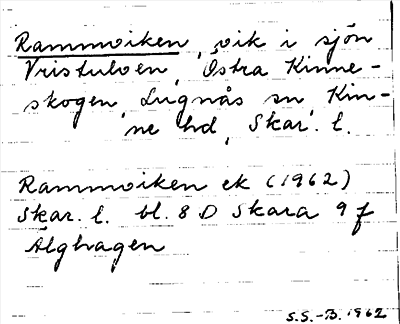 Rammviken, vik i sjön
Vristulven, Östra Kinne-
skogen, Lugnås sn, Kin-
ne hd, Skar. l.
Rammviken ek (1962)
Skar. l. bl. 8 D Skara 9 f
Älghagen
S.S.-B. 1962